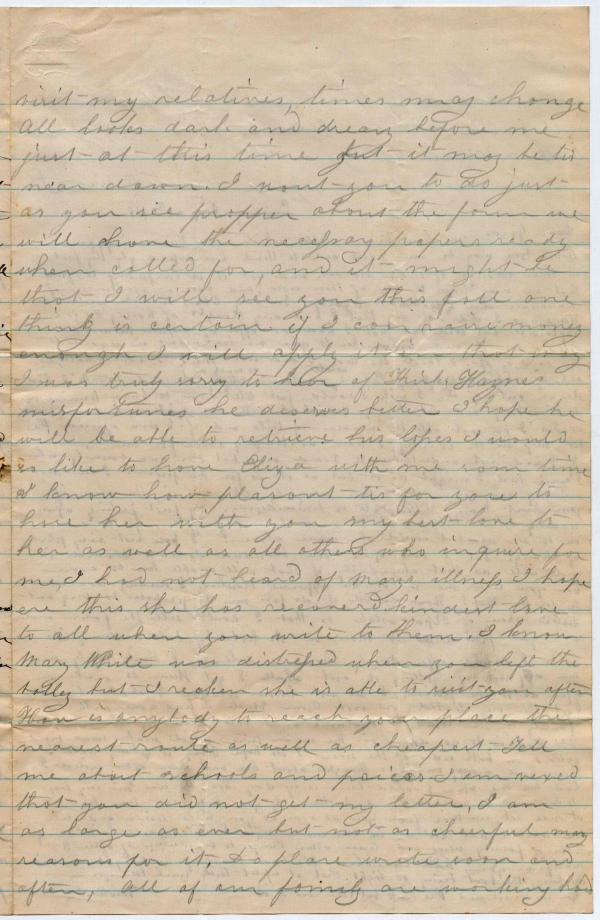 visit my relatives, times may change
All looks dark and dreary before me
just at this time but it may be tis
near dawn. I want you to do just
as you see propper about the farm we
will have the necessary papers ready
when called for, and it might be
that I will see you this fall one
think is certain if I can raise money
enough I will apply it in that way
I was truly sorry to hear of Haynes
misfortunes he deserves better I hope he
will be able to retrieve his loses I would
so like to have Eliza with me som time
I know how plasant tis for you to
have her with you my best love to
her as well as all others who inquire for
me, I had not heard of Marys illness I hope
ere this she has recovered kindest love
to all when you write to them. I know
Mary White was distressed when you left the
valley but I recken she is able to visit you often
How is anybody to reach your place the
nearest route as well as cheapest Tell
me about schools and prices I am vexed
that you did not get my letter, I am
as large as ever but not as cheerful may
reasons for it, Do plase write soon and
often, All of our family are working hard